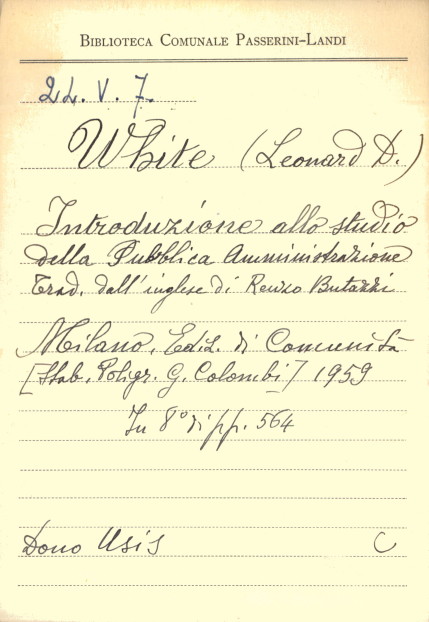 BIBLIOTECA COMUNALE PASSERINI-LANDI
2L. V. 7.
White (Leonard D.)
Introduzione allo studio
della Pubblica Amministrazione
Trad. dall'inglese di Renzo Butazzi
Milano, Ediz. di Comunità
[Stab. Poligr. G. Colombi] 1959
In 8° di pp. 564
Dono Usis C